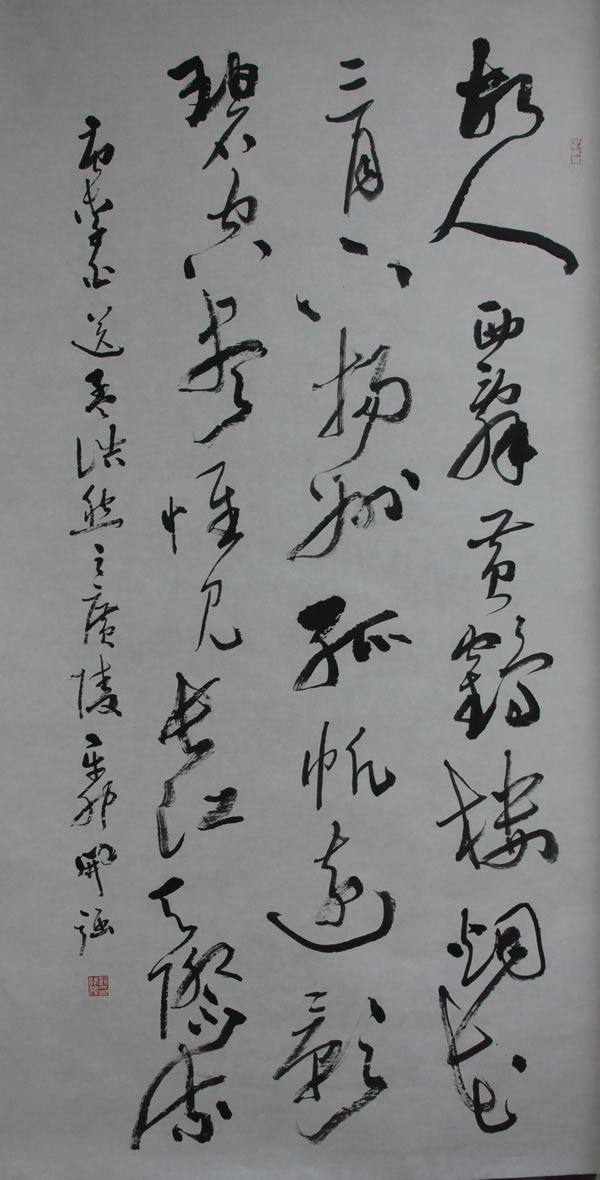 故人西辭黄鶴樓烟花
三月下揚州孤帆遠影
碧空盡惟見長江天際流
唐李白送孟浩然之廣陵辛卯開强